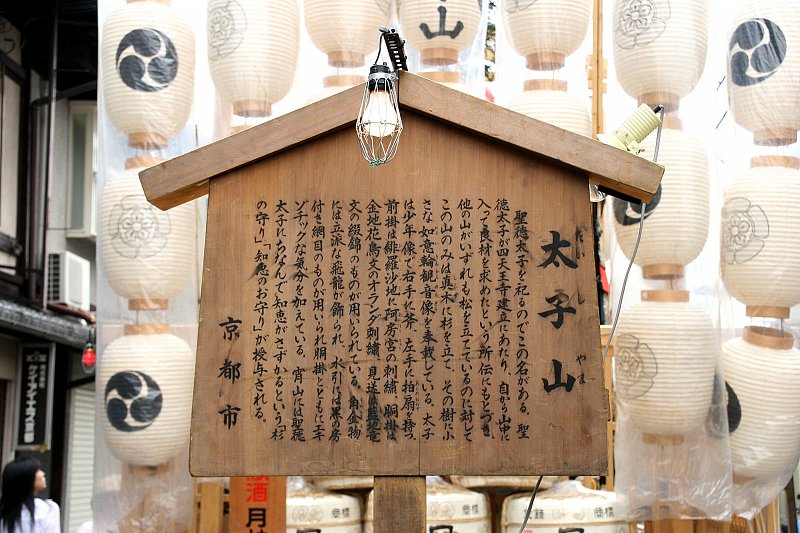 太子山
たいしやま
聖徳太子を祀るのでこの名がある。聖
徳太子が四天王寺建立にあたり、自から山中に
入って良材を求めたという所伝にもとづき
他の山がいずれも松を立てているのに対して
この山のみは真木に杉を立て、その樹に小
さな如意輪観音像を奉載している。太子
は少年像で右手に斧、左手に拍扇を持つ。
前掛は緋羅沙地に阿房宮の刺繍、胴掛は
金地花鳥文のオランダ刺繍、見送は
文の綴錦のものが用いられている。角金物
には立派な飛龍が飾られ、水引には黒の房
付き網目のものが用いられ胴掛とともにエキ
ゾチックな気分を加えている。宵山には聖徳
太子にちなんで知恵がさずかるという「杉
の守り」「知恵のお守り」が授与される。
京都市
山
酒
月
商標
商標